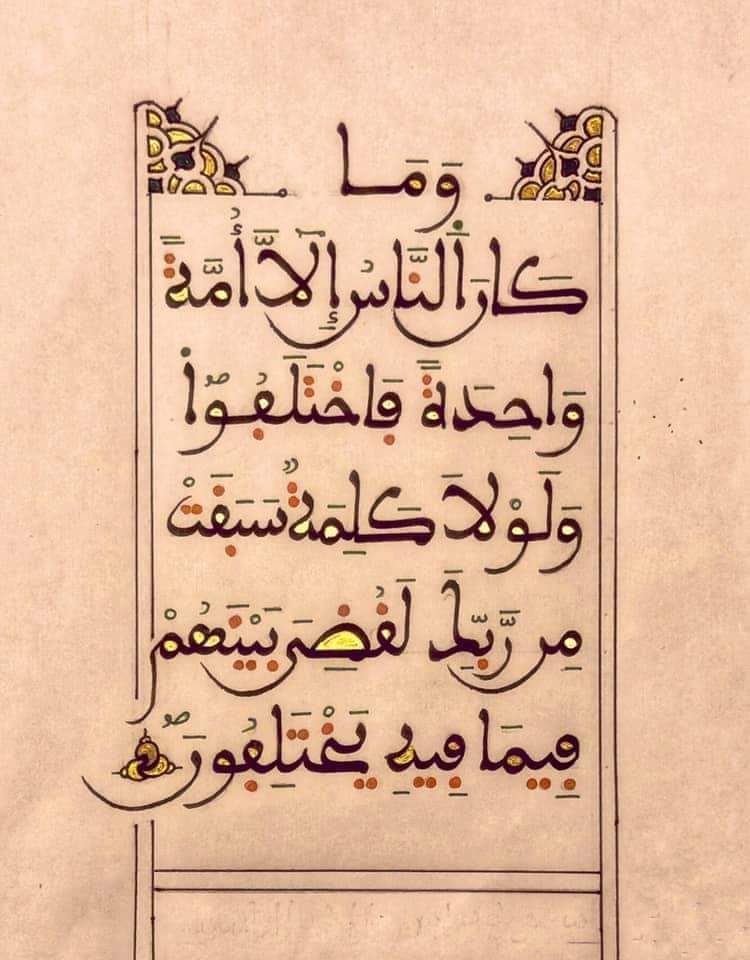 وَمَا
كَانَ اَ۬لنَّاسُ إِلَّآ أُمَّةٗ
وَٰحِدَةٗ فَاخْتَلَفُواْۖ
وَلَوْلَا كَلِمَةٞ سَبَقَتْ
مِن رَّبِّكَ لَقُضِيَ بَيْنَهُمْ
فِيمَا فِيهِ يَخْتَلِفُونَۖ